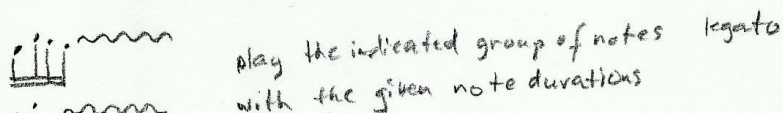 play the indicated group of notes legato
with the given note durations